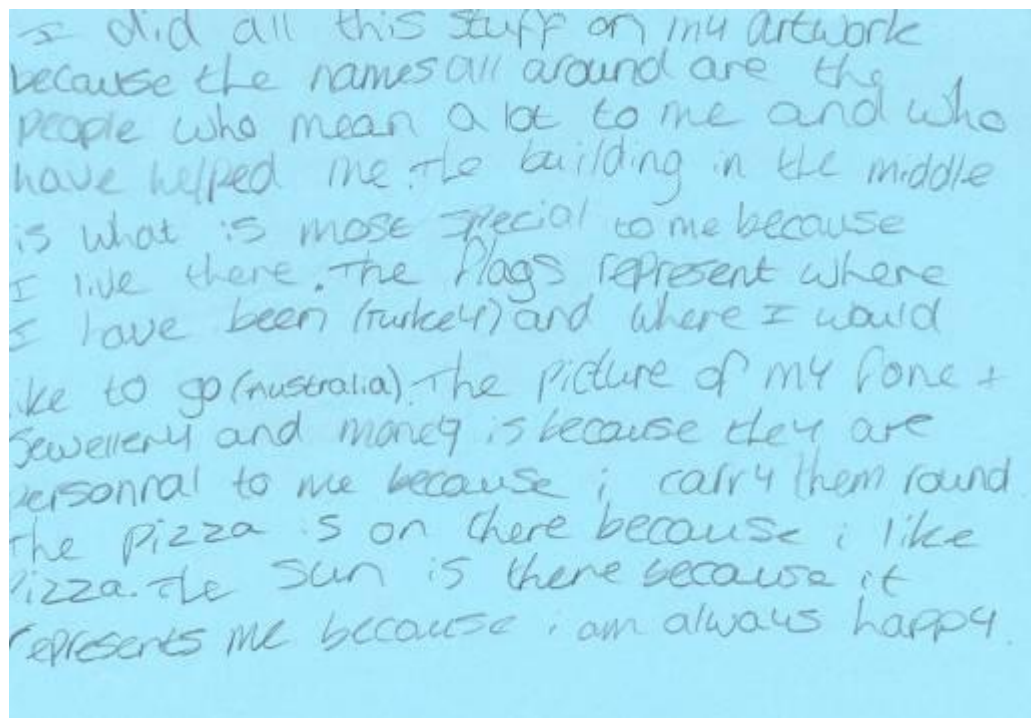 I did all this stuff on my artwork
because the names all around are the
people who mean a lot to me and who
have helped me. The building in the middle
is what is most special to me because
I live there. The flags represent where
I have been (Turkey) and where I would
like to go (Australia). The picture of my fone +
jewellery and money is because they are
personnal to me because i carry them round.
The pizza is on there because i like
Pizza. The sun is there because it
represents me because i am always happy.